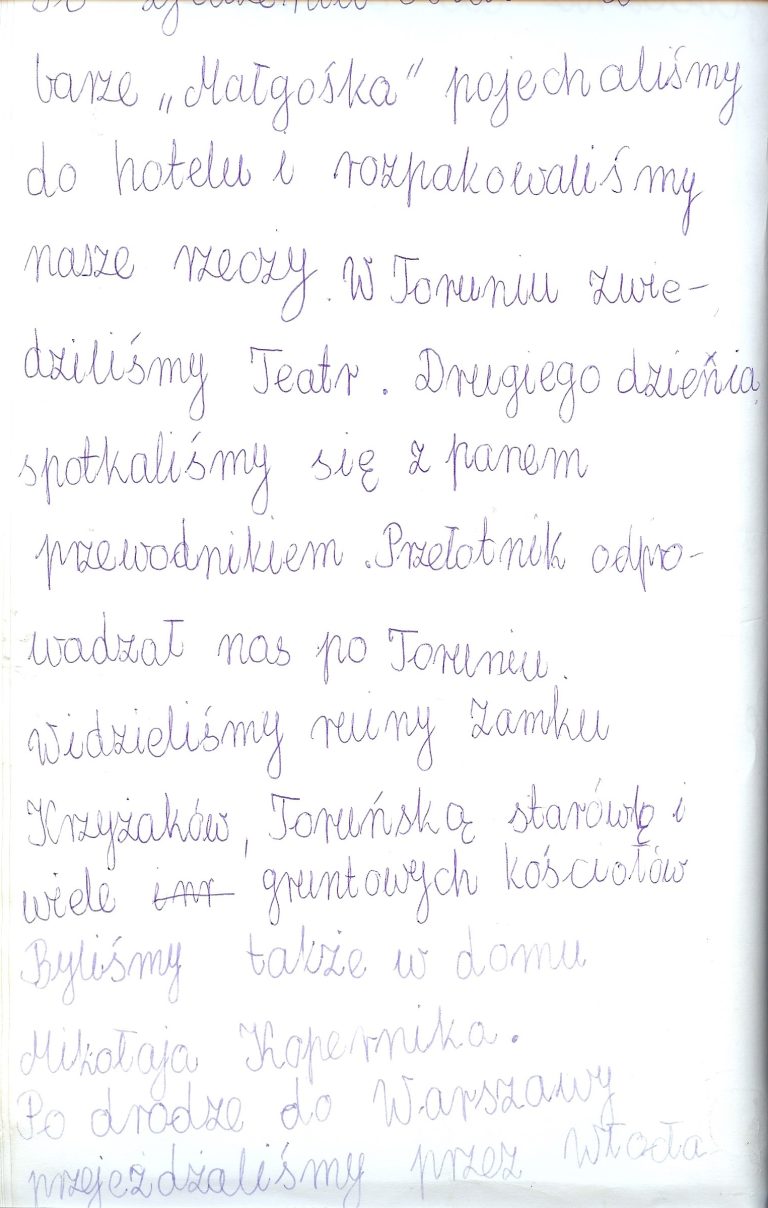 barze „Małgośka" pojechaliśmy
do hotelu i rozpakowaliśmy
nasze rzeczy. W Toruniu zwie-
dziliśmy Teatr. Drugiego dzieńia
spotkaliśmy się z panem
przewodnikiem. Przełotnik odpro-
wadzał nas po Toruniu.
Widzieliśmy ruiny zamku
Krzyżaków, Toruńską starówkę i
wiele inr gruntowych kościołów
Byliśmy także w domu
Mikołaja Kopernika.
Po drodze do Warszawy
przejeżdżaliśmy przez Włocła